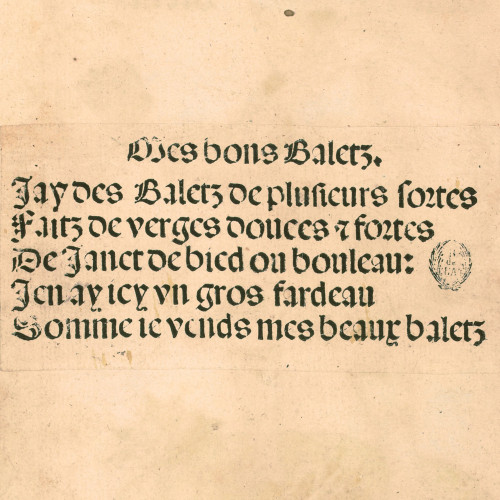 Mes bons Baletz.
Jay des Baletz de pluſieurs ſortes
Faitz de verges douces ⁊ fortes
De Janct de bied ou bouleau:
Jen ay icy vn gros fardeau
Somme ie vends mes beaux baletz